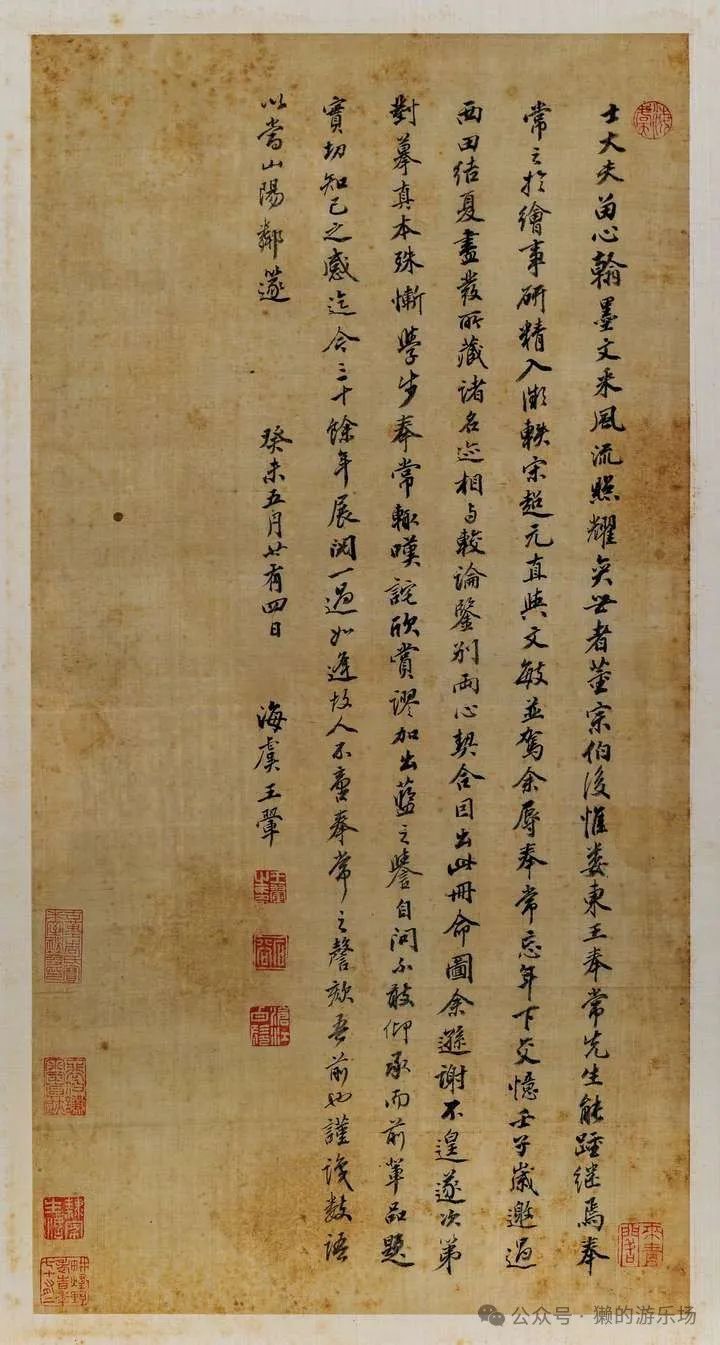 士大夫留心翰墨文采風流照耀奕世者董宗伯後惟婁東王奉常先生能踵継焉奉
常之於繪事研精入微軼宋超元直與文敏並駕余辱奉常忘年下交憶壬子歲邀過
西田結夏盡發所藏諸名迹相与較論鑒別兩心契合因出此冊命圖余遜謝不遑遂次第
對摹真本殊慚學步奉常輒嘆詫欣賞謬加出藍之譽自問不敢仰承而前輩品題
實切知己之感迄今三十餘年展閱一過如逢故人不啻奉常之謦欬吾前也謹識數語
以當山陽鄰邃
癸未五月廿有四日
海虞王翬
公众号·獭的游乐场